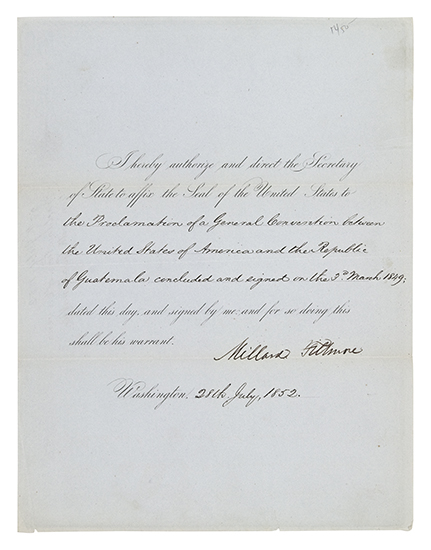 1450
I hereby authorize and direct the Secretary
of State to affix the Seal of the United States to
the Proclamation of a General Convention between
the United States of America and the Republic
of Guatemala concluded and signed on the 3d March 1849;
dated this day, and signed by me: and for so doing this
shall be his warrant.
Millard Fillmore
Washington, 28th July, 1852.